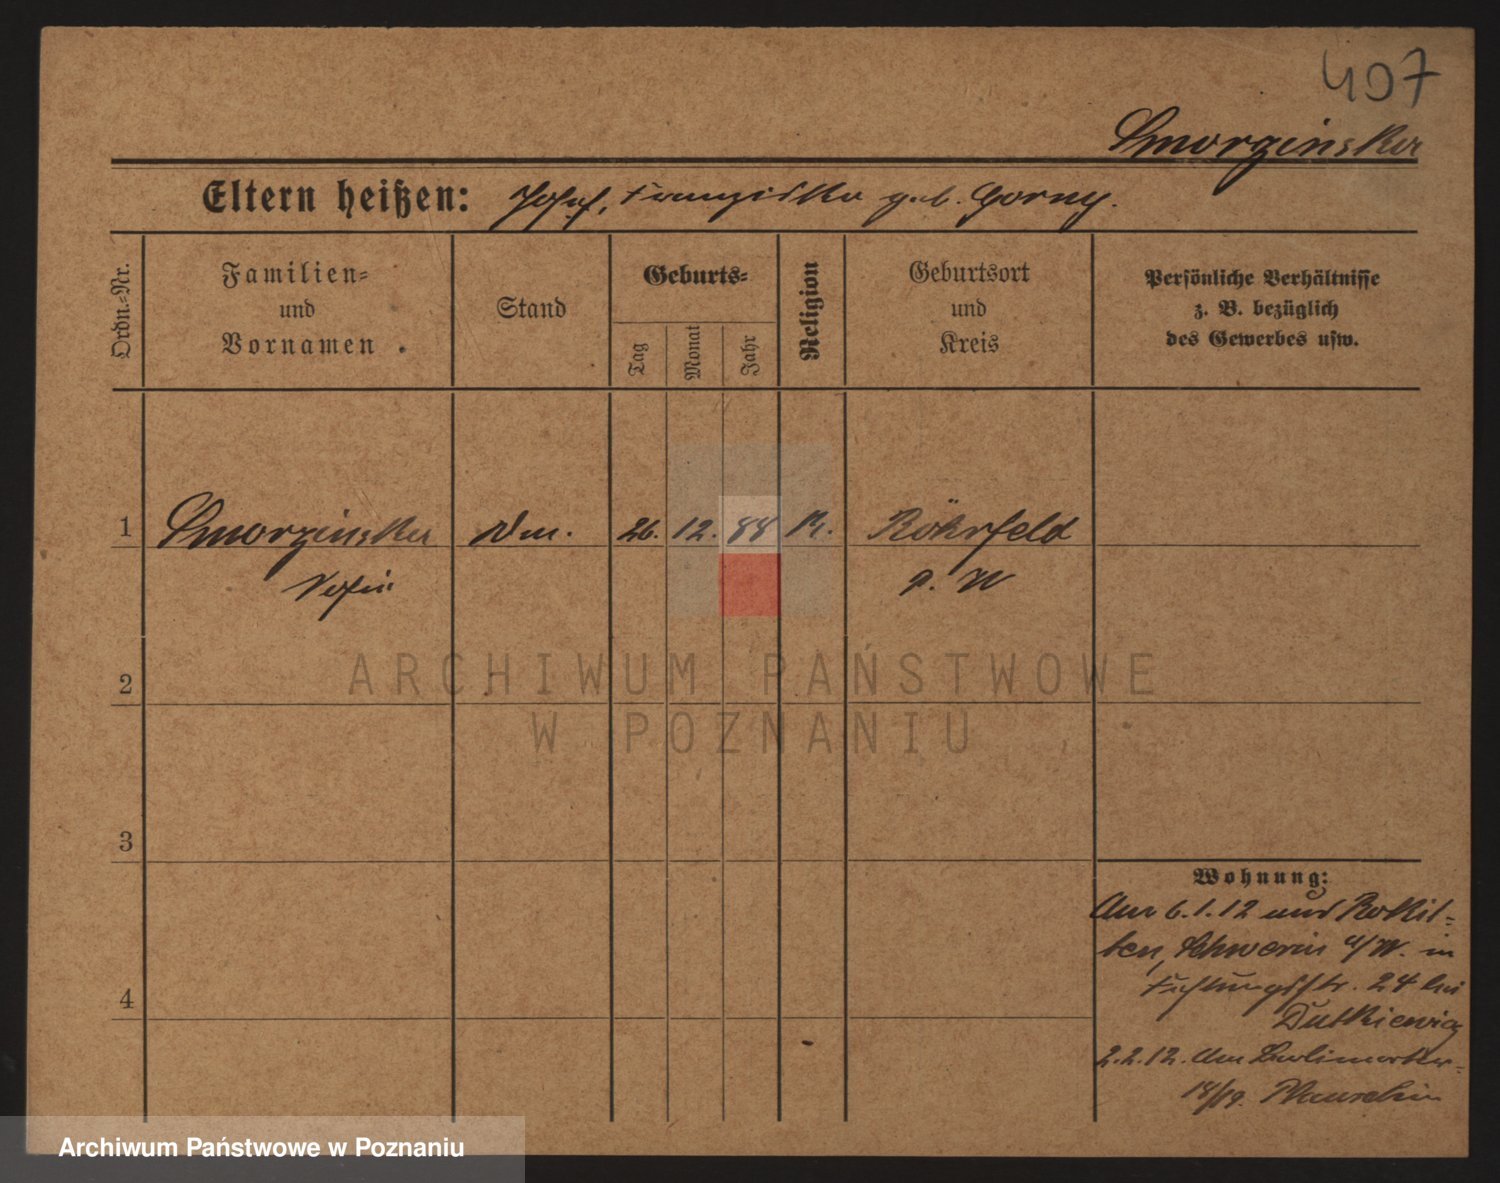 407
Smorzinska
Eltern heißen: Josef, Franziska geb. Gorny.
Ordn.-Nr.
Familien-
und
Vornamen
Stand
Geburts-
Tag
Monat
Jahr
Religion
Geburtsort
und
Kreis
Persönliche Verhältnisse
z. B. bezüglich
des Gewerbes usw.
1 Smorzinska 26. 12. 88 K. Röhrfeld
2
3
4
ARCHIWUM PAŃSTWOWE
W POZNANIU
Wohnung:
6.1.12 aus Rokit-
ten, Schwerin a/W. in
24 bei
Dutkiewicz
2.2.12. Am Berliner
18/19.
Archiwum Państwowe w Poznaniu